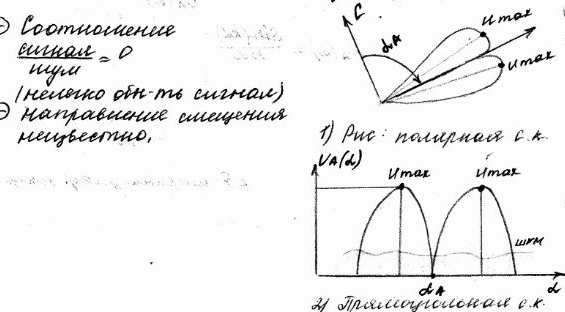 ⊖ Соотношение
сигнал
шум
= 0
(нелегко обн-ть сигнал)
⊖ Направление смещения
неизвестно.
С
αA
Umax
Umax
1) Рис: полярная с.к.
UA(α)
Umax
Umax
шум
αA
α
2) Прямоугольная с.к.